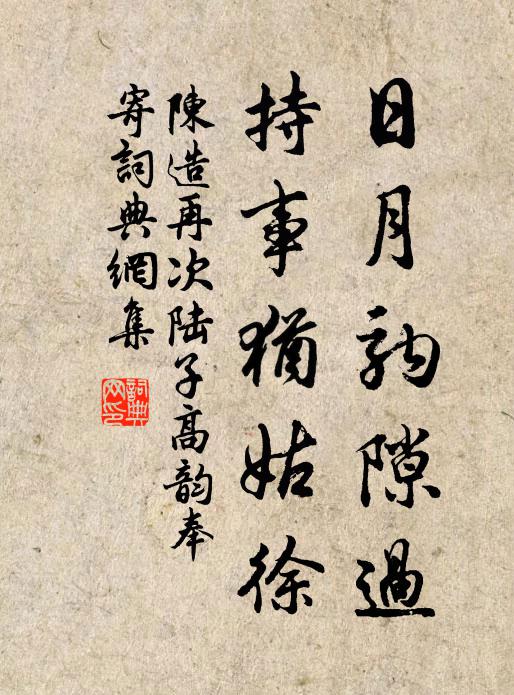 日月駒隙過
持事猶姑徐
陳造再次陸子高韵奉
寄詞典網集
詞典
网印